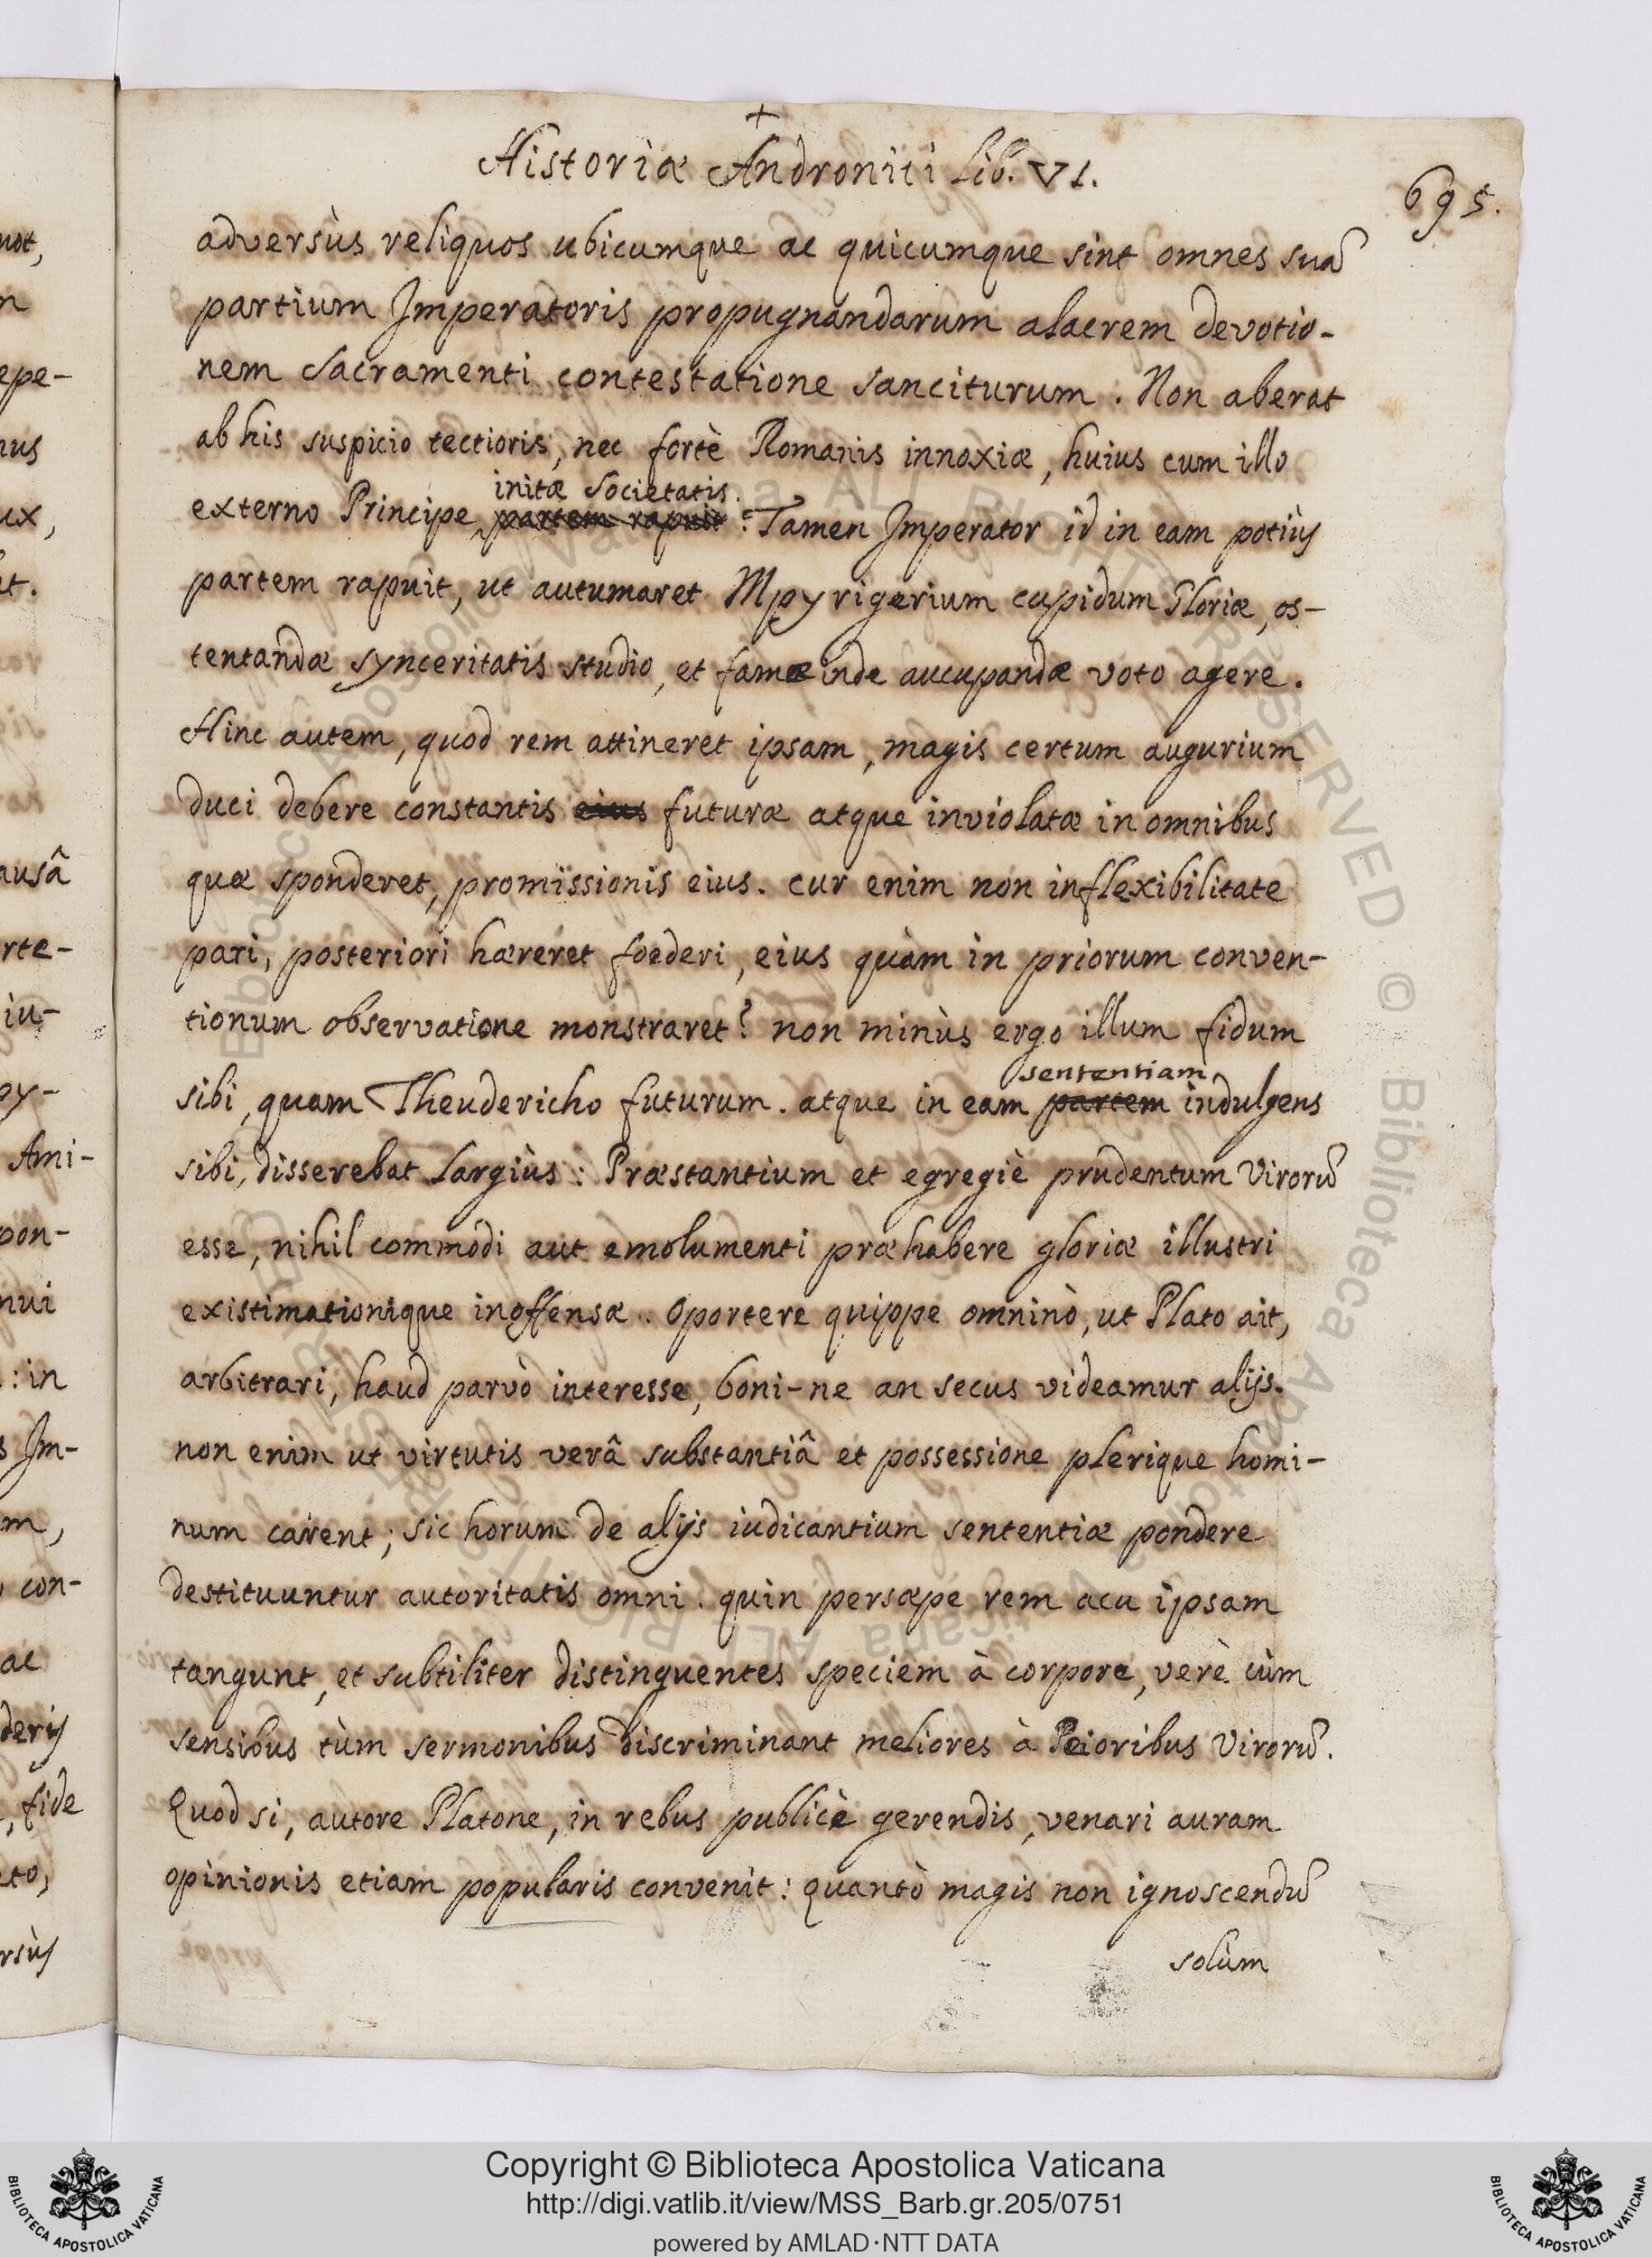 not,
n
epe-
nus
ux,
at.
ausâ
rte-
iu-
py-
Ami-
pon-
nui
: in
s Im-
m,
con-
ac
deris
, fide
eto,
rsùs
+
Historiæ Andronici Lib. VI.
695.
adversùs reliquos ubicumque ac quicumque sint omnes suã
partium Imperatoris propugnandarum alacrem devotio-
nem Sacramenti contestatione sanciturum. Non aberat
ab his suspicio tectioris, nec fortè Romanis innoxiæ, huius cum illo
initæ Societatis.
externo Principe partem rapuit: Tamen Imperator id in eam potiùs
partem rapuit, ut autumaret Mpyrigerium cupidum Gloriæ, os-
tentandæ synceritatis studio, et famæ inde aucupandæ voto agere.
Hinc autem, quod rem attineret ipsam, magis certum augurium
duci debere constantis eius futuræ atque inviolatæ in omnibus
quæ sponderet, promissionis eius. cur enim non inflexibilitate
pari, posteriori hæreret foederi, eius quàm in priorum conven-
tionum observatione monstraret? non minùs ergo illum fidum
sententiam
sibi, quam Theudericho futurum. atque in eam partem indulgens
sibi, disserebat Largiùs: Præstantium et egregiè prudentum Virorũ
esse, nihil commodi aut emolumenti præhabere gloriæ illustri
existimationique inoffensæ. Oportere quippe omninò, ut Plato ait,
arbitrari, haud parvò interesse, boni-ne an secus videamur alijs.
non enim ut virtutis verâ substantiâ et possessione plerique homi-
num carent; sic horum de alijs iudicantium sententiæ pondere
destituuntur autoritatis omni. quin persæpe rem acu ipsam
tangunt, et subtiliter distinguentes speciem à corpore, verè cùm
sensibus tùm sermonibus discriminant meliores à Peioribus Virorũ.
Quod si, autore Platone, in rebus publicè gerendis, venari auram
opinionis etiam popularis convenit: quantò magis non ignoscendũ
solùm
Copyright © Biblioteca Apostolica Vaticana
http://digi.vatlib.it/view/MSS_Barb.gr.205/0751
powered by AMLAD·NTT DATA
BIBLIOTECA APOSTOLICA VATICANA
BIBLIOTECA APOSTOLICA VATICANA